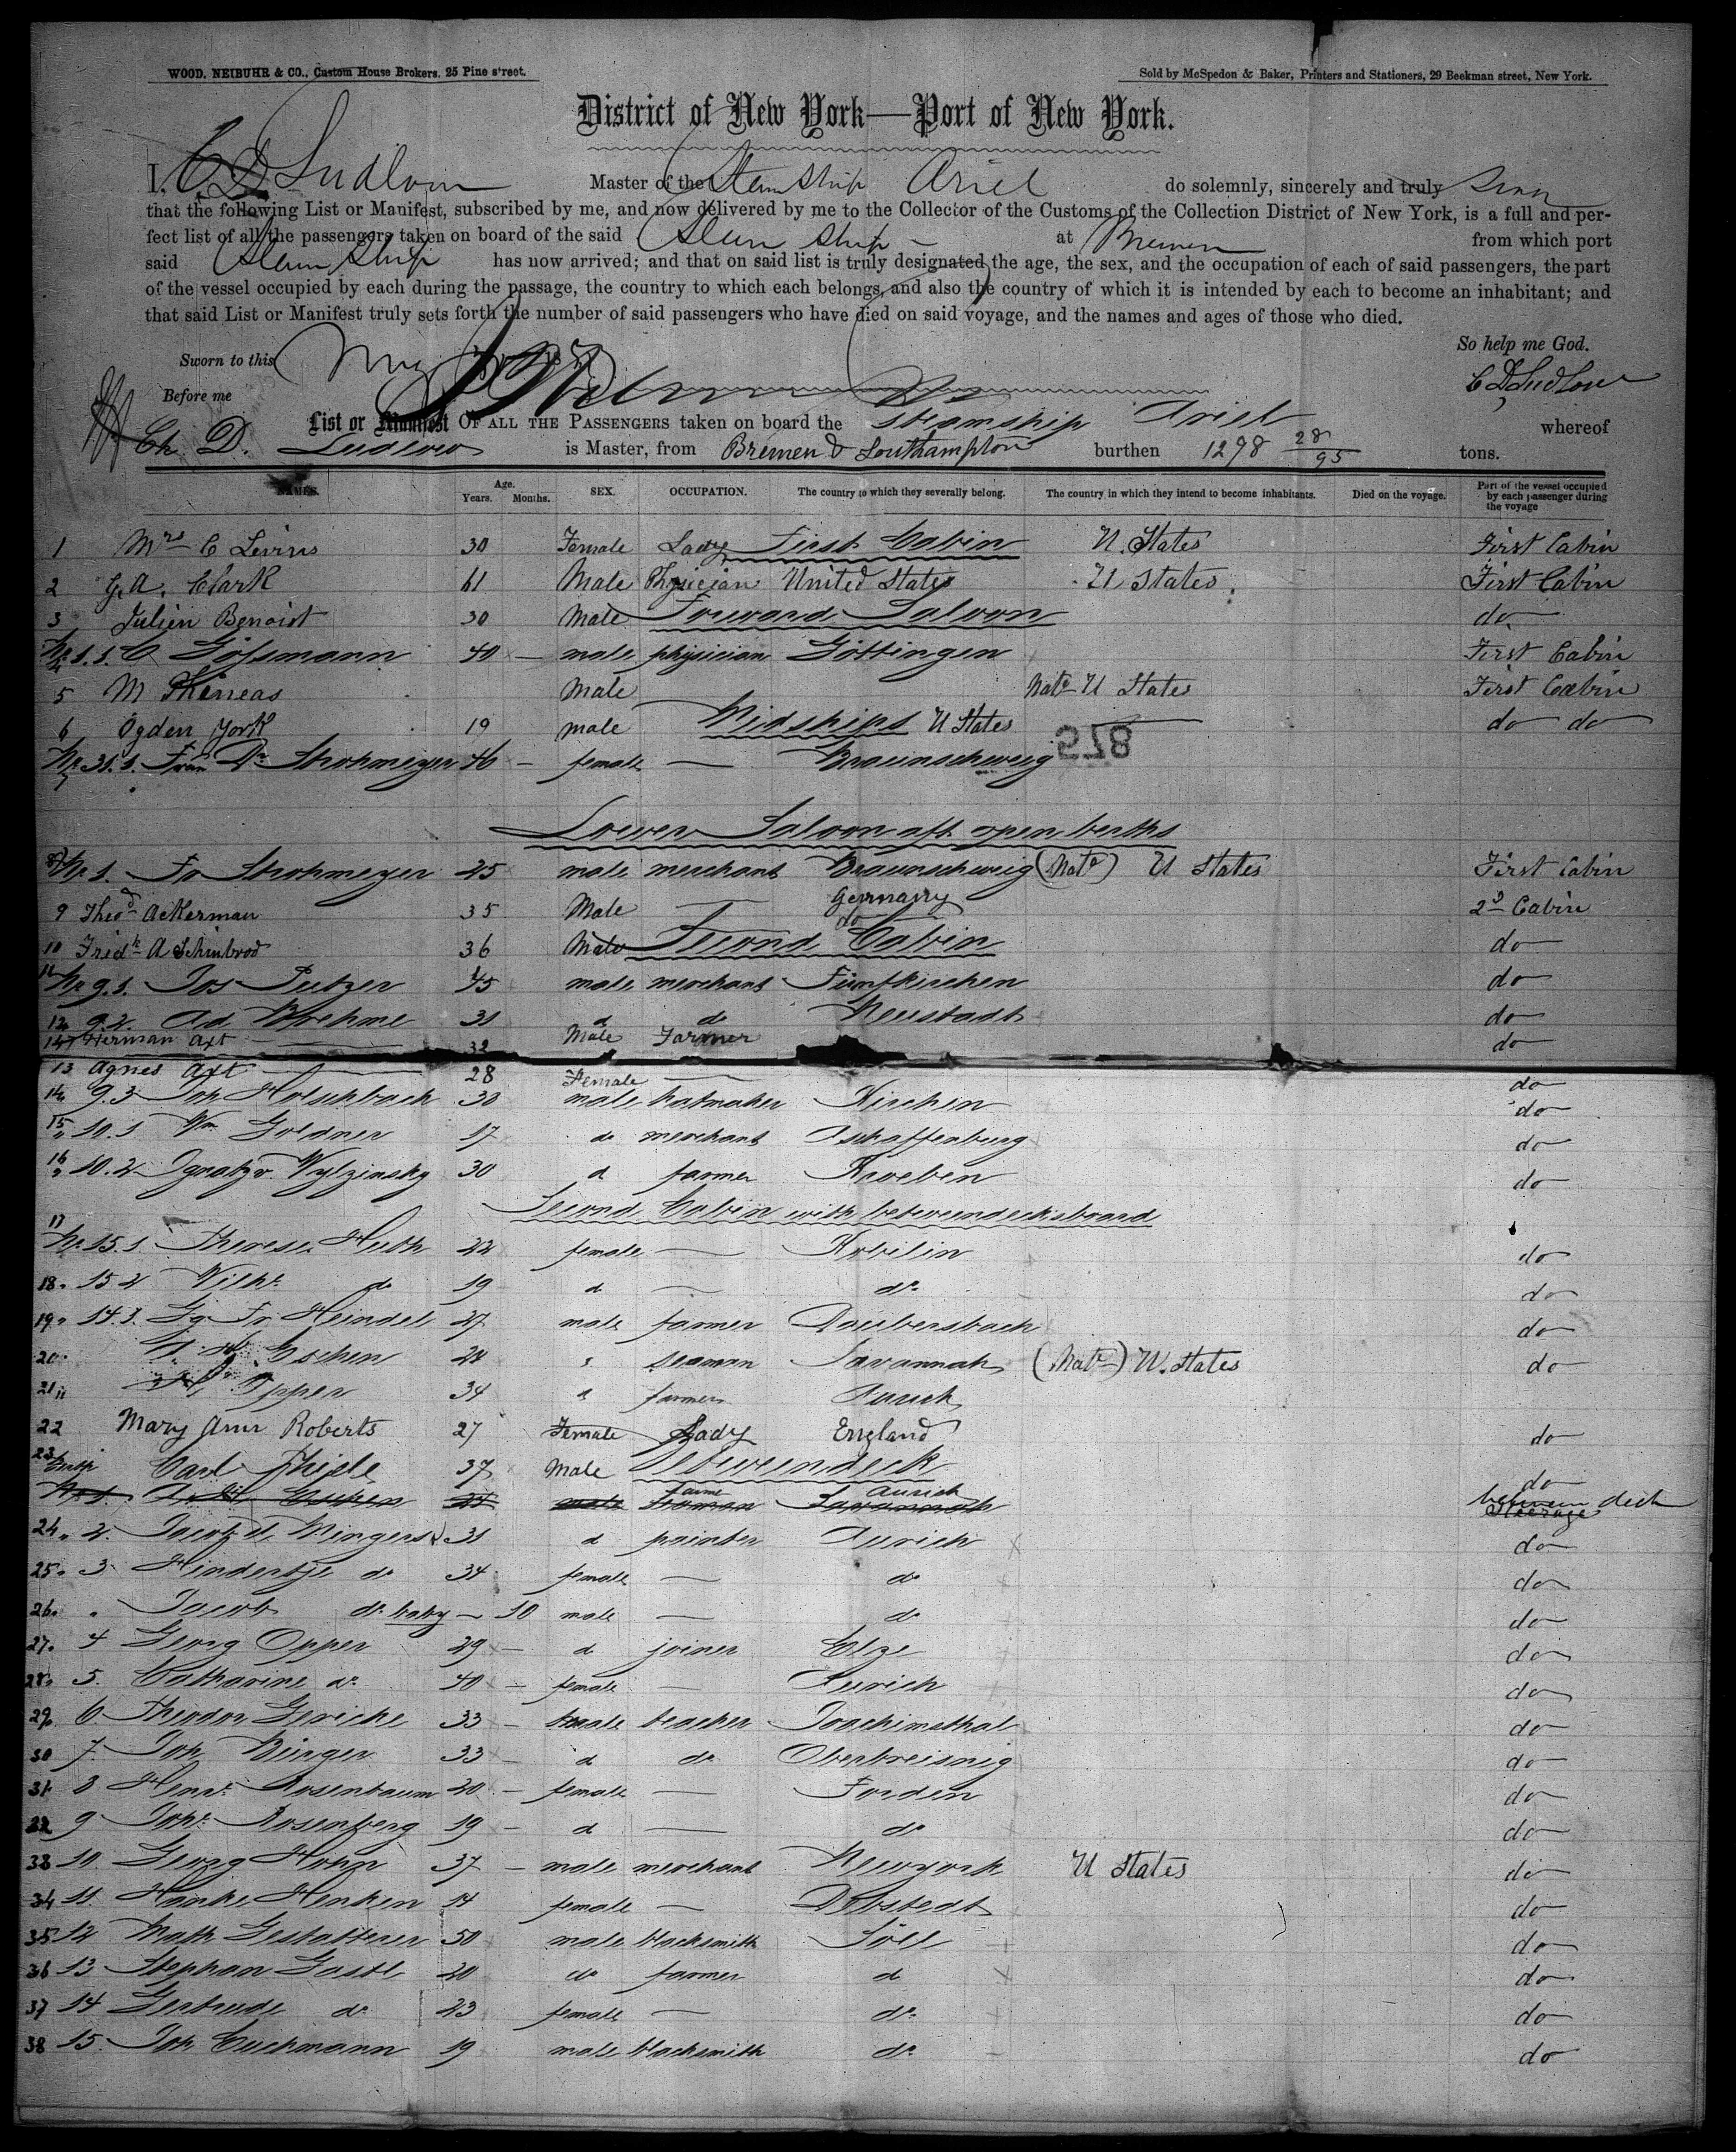 WOOD, NEIBUHR & CO., Custom House Brokers. 25 Pine street.
Sold by McSpedon & Baker, Printers and Stationers, 29 Beekman street, New York.
District of New York—Port of New York.
I, C D Ludlow Master of the Steam Ship Ariel do solemnly, sincerely and truly
that the following List or Manifest, subscribed by me, and now delivered by me to the Collector of the Customs of the Collection District of New York, is a full and per-
fect list of all the passengers taken on board of the said Steam Ship at Bremen from which port
said Steam Ship has now arrived; and that on said list is truly designated the age, the sex, and the occupation of each of said passengers, the part
of the vessel occupied by each during the passage, the country to which each belongs, and also the country of which it is intended by each to become an inhabitant; and
that said List or Manifest truly sets forth the number of said passengers who have died on said voyage, and the names and ages of those who died.
So help me God.
Sworn to this
C D Ludlow
Before me
List or Manifest OF ALL THE PASSENGERS taken on board the Steamship Ariel whereof
Ch. D. Ludlow is Master, from Bremen & Southampton burthen 1298 28/95 tons.
NAMES. Age. Years. Months. SEX. OCCUPATION. The country to which they severally belong. The country in which they intend to become inhabitants. Died on the voyage. Part of the vessel occupied by each passenger during the voyage
1 Mrs C Levins 30 Female Lady First Cabin U. States First Cabin
2 G. A. Clark 61 Male Physician United States U States First Cabin
3 Julien Benoist 30 Male Forward Saloon do
4 No 1.1. C Gössmann 40 — male physician Göttingen First Cabin
5 M Phineas Male Nate U States First Cabin
6 Ogden York 19 male Midships U States do do
578
7 No 31.1. Frau Dr Strohmeyer 46 — female — Braunschweig
Lower Saloon aft open berths
8 No 1. Fr Strohmeyer 25 male merchant Braunschweig (Nate) U States First Cabin
9 Theod Ackerman 35 Male — Germany 2d Cabin
10 Fridk A Schinbrod 36 Male do Second Cabin do
11 No 9.1. Jos Putzer 45 male merchant Fünfkirchen do
12 9.2. Ad Boehme 31 d do Neustadt do
Herman Axt 32 Male Farmer do
13 Agnes Axt 28 Female — do
14 9.3 Joh Holschbach 30 male hatmaker Kirchen do
15 10.1 Wm Goldner 17 do merchant Aschaffenburg do
16 10.2 Ignatz v. Wylzinsky 30 d farmer Kroeben do
Second Cabin with betweendecksboard
17 No 15.1. Therese Huth 22 female — Kobilin do
18 15.2 Wilhe do 19 d — do do
19 14.1. Gg Fr Heindel 27 male farmer Daubersbach do
20 Eschen 24 " seaman Savannah (Nate) U. States do
21 Opper 34 d farmer Aurich
22 Mary Ann Roberts 27 Female Lady England do
23 Carl Thiele 37 Male Betweendeck do
Eschen 24 male Seaman Farmer Savannah Aurich Steerage between deck
24 2. Jacob d. Mingers 31 d painter Aurich do
25 3 Hindertje do 34 female — do do
26 " Jacob do baby — 10 male — do do
27 4 Georg Opper 29 — d joiner Elze do
28 5. Catharine do 40 — female — Aurich do
29 6. Theodor Gericke 33 — male teacher Joachimsthal do
30 7. Joh Bürger 33 — d do do
31 8 Henr. Rosenbaum 20 — female — Forden do
32 9 Joh. Rosenberg 19 — d — do do
33 10. Georg Hohn 37 — male merchant Newyork U States do
34 11. Hanke Henken 14 female — Debstedt do
35 12 Math Gestattener 50 male blacksmith Söll do
36 13 Stephan Gastl 20 do farmer d do
37 14 Gertrude do 23 female — do do
38 15. Joh Buchmann 19 male blacksmith do do